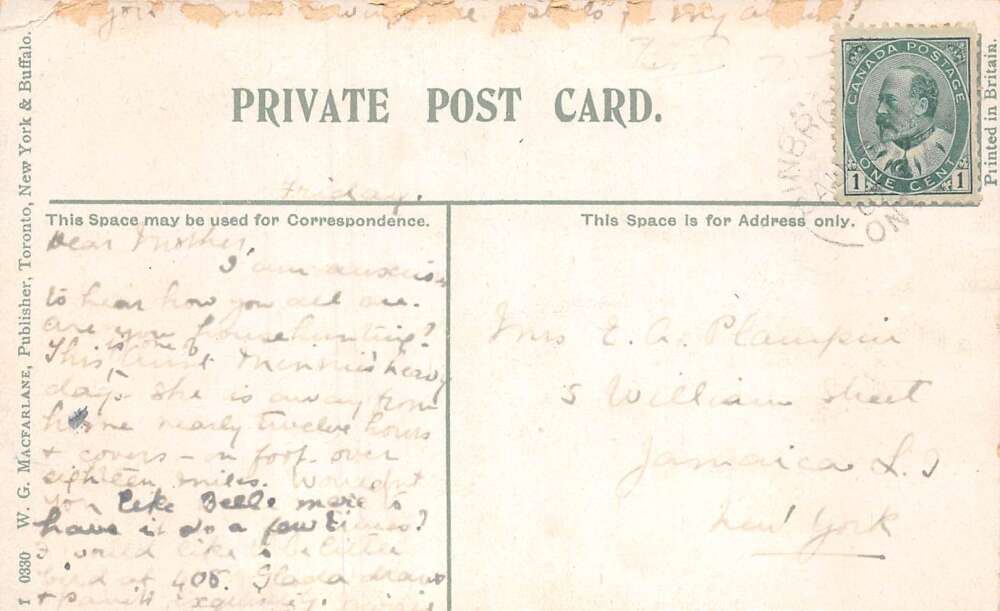 my
PRIVATE POST CARD.
CANADA POSTAGE
ONE CENT
1 1
ONT
Printed in Britain.
1 0330 W. G. MACFARLANE, Publisher, Toronto, New York & Buffalo.
Friday.
This Space may be used for Correspondence.
Dear Mother,
I am anxious
to hear how you all are.
Are you househunting?
This is one of Aunt Minnie's heavy
days. She is away from
home nearly twelve hours
+ covers - on foot over
eighteen miles. Wouldn't
you like Belle mare to
have it do a few times?
I would like to be
at 405.
This Space is for Address only.
Mrs E. A. Plampin
5 William Street
Jamaica L. I
New York